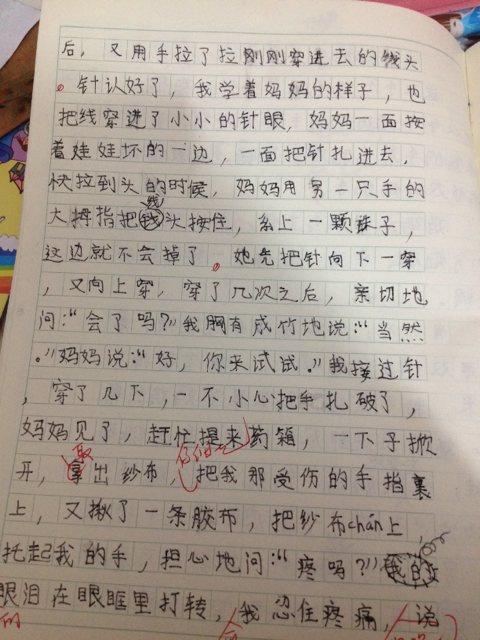 后，又用手拉了拉刚刚穿进去的线头
。针认好了，我学着妈妈的样子，也
把线穿进了小小的针眼，妈妈一面按
着娃娃坏的一边，一面把针扎进去，
快拉到头的时候，妈妈用另一只手的
大拇指把线头按住，系上一颗珠子，
这边就不会掉了。她先把针向下一穿
，又向上穿，穿了几次之后，亲切地
问：“会了吗？”我胸有成竹地说：“当然
。”妈妈说：“好，你来试试。”我接过针
，穿了几下，一不小心把手扎破了，
妈妈见了，赶忙提来药箱，一下子掀
开，拿出纱布，把我那受伤的手指裹
取
上，又揪了一条胶布，把纱布chán上，
托起我的手，担心地问：“疼吗？”我的
眼泪在眼眶里打转，我忍住疼痛，说